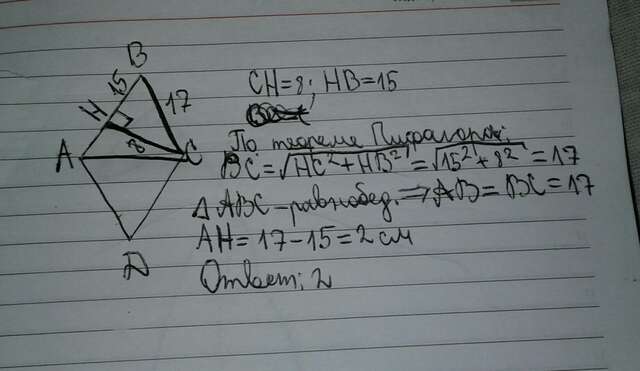 B
15
H
17
8
A
C
D
CH=8; HB=15
По теореме Пифагора:
BC=√HC²+HB²=√15²+8²=17
△ABC-равнобед.⇒AB=BC=17
AH=17-15=2 см
Ответ: 2